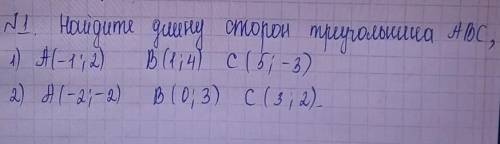 №1. Найдите длину сторон треугольника ABC,
1) A(-1; 2) B(1; 4) C(5; -3)
2) A(-2; -2) B(0; 3) C(3; 2).